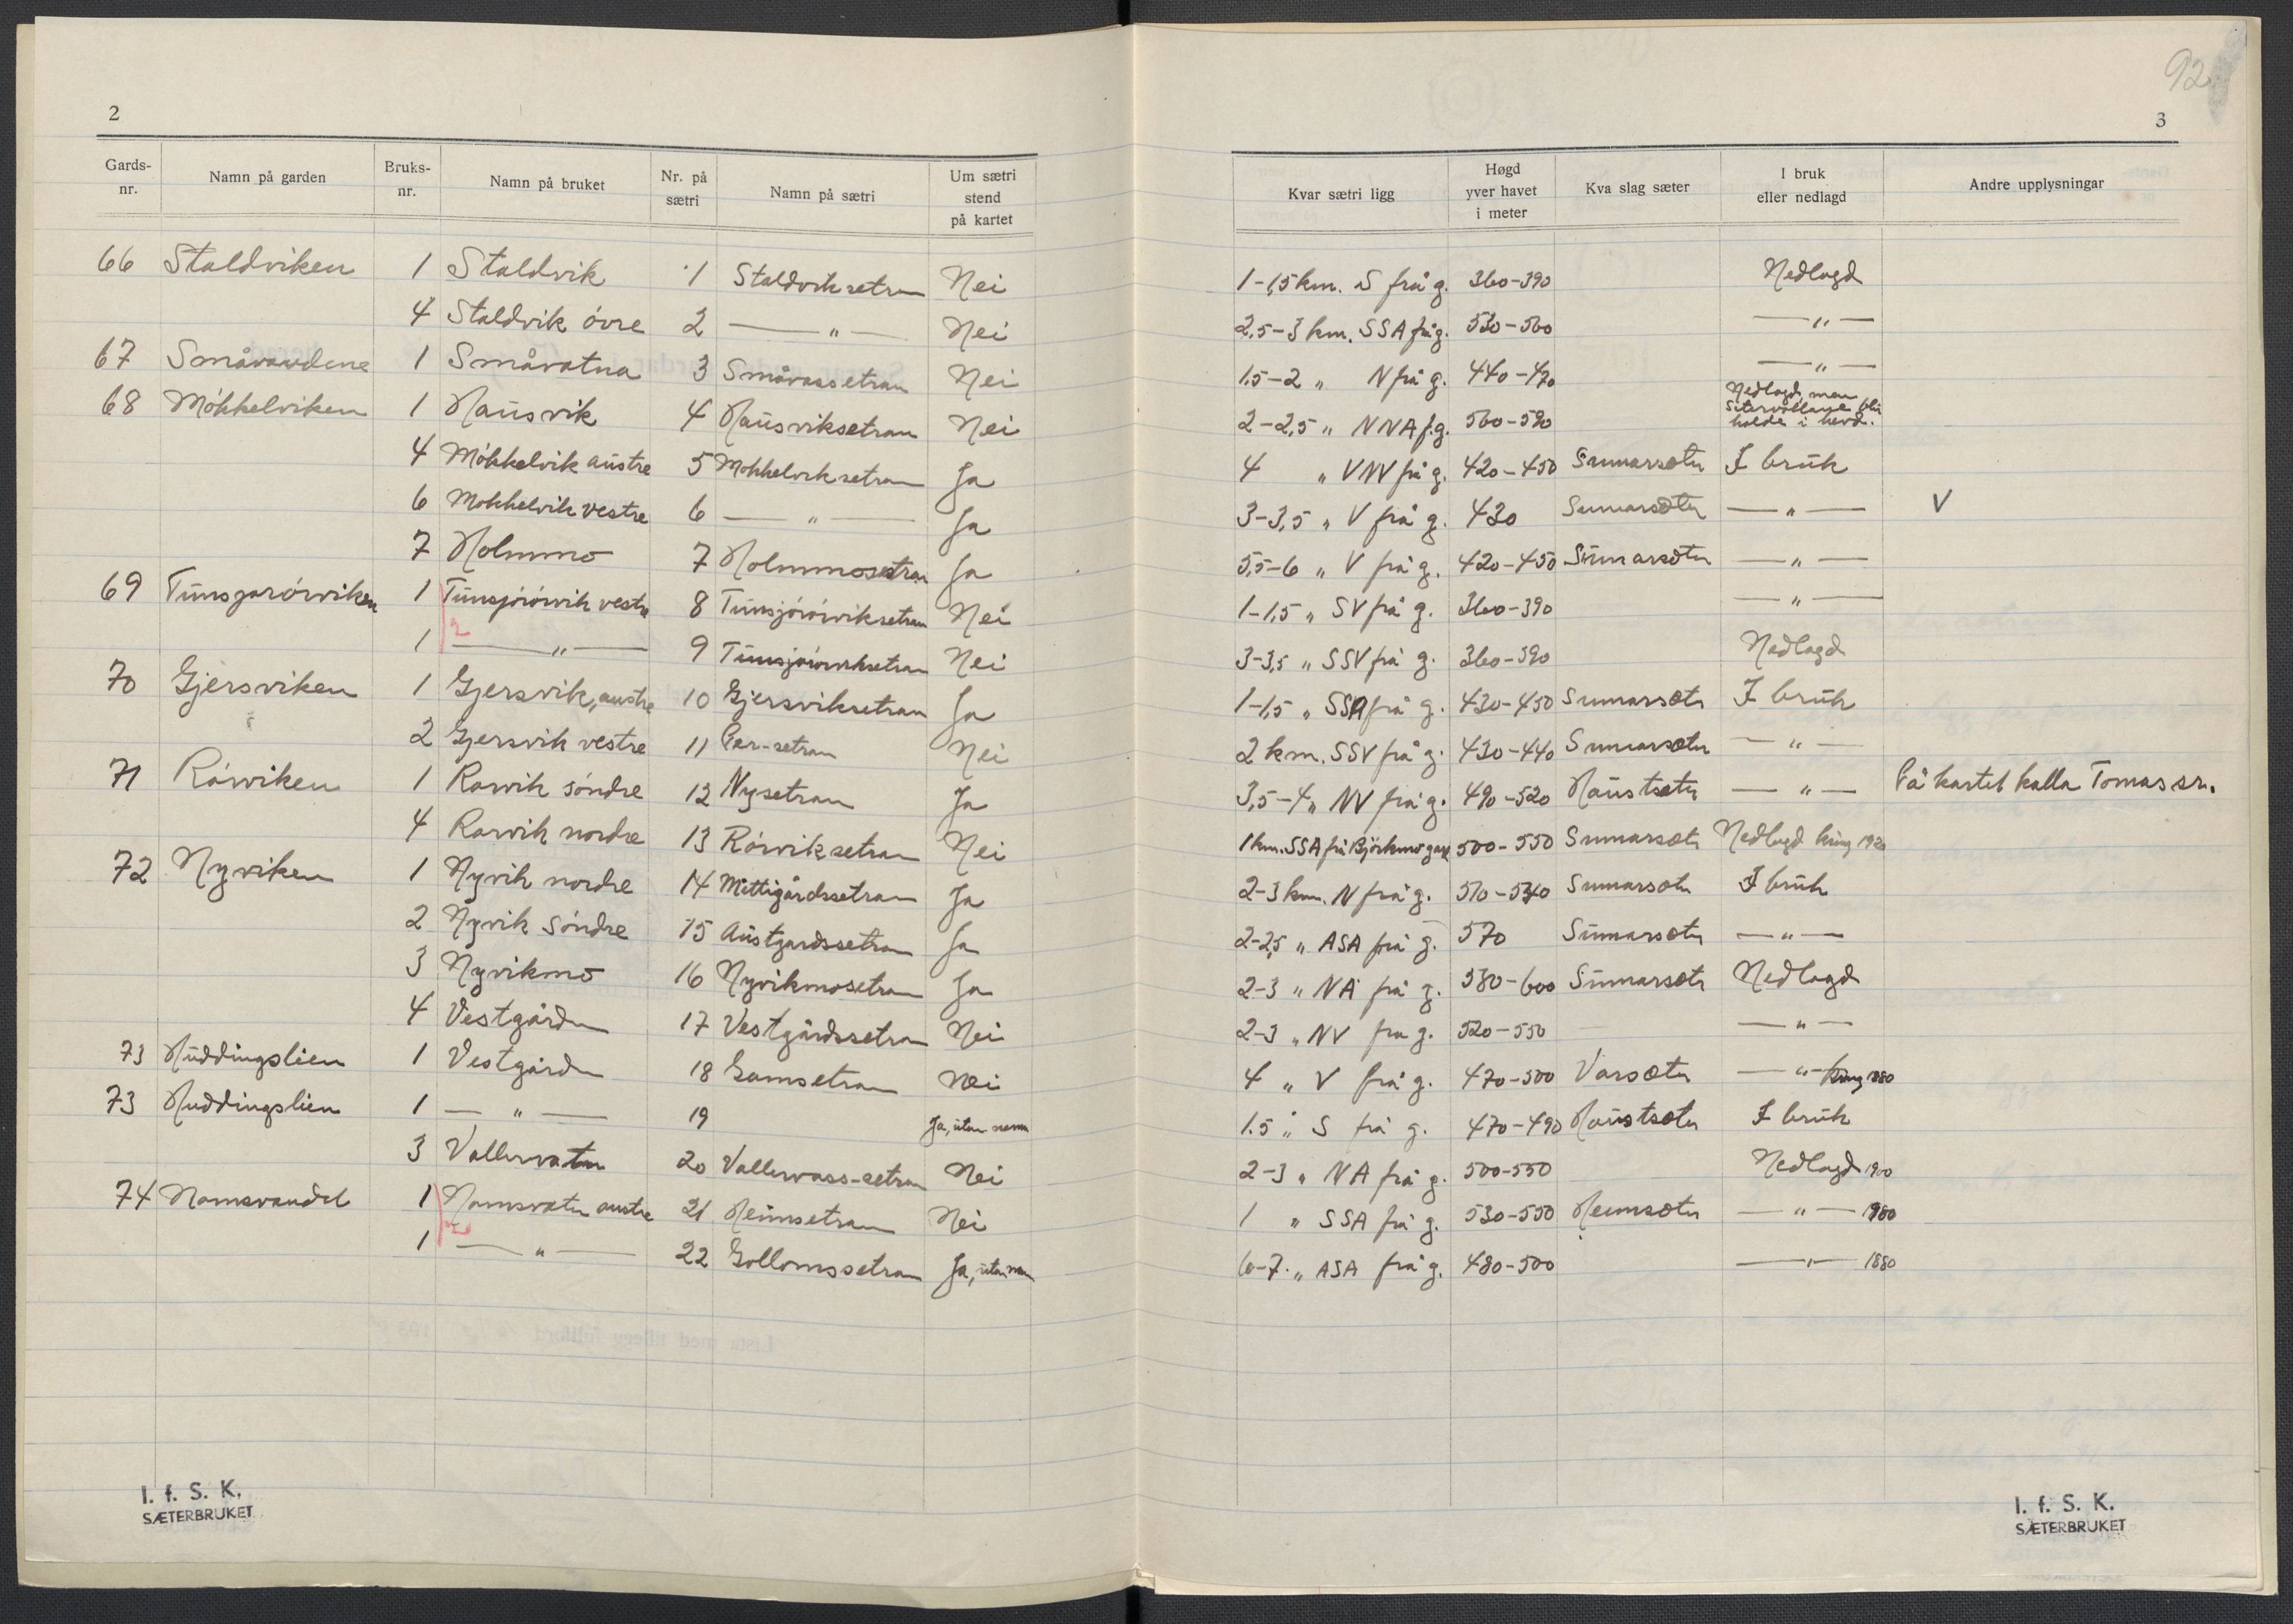 92
2
3
Gards-nr. Namn på garden Bruks-nr. Namn på bruket Nr. på sætri Namn på sætri Um sætri stend på kartet Kvar sætri ligg Høgd yver havet i meter Kva slag sæter I bruk eller nedlagd Andre upplysningar
66 Staldviken 1 Staldvik 1 Staldviksetran Nei 1-1,5 km. S frå g. 360-390 Nedlagd
4 Staldvik övre 2 —"— Nei 2,5-3 km. SSA frå g. 530-560 —"—
67 Småvandene 1 Småvatna 3 Småvassetran Nei 1.5-2 " N frå g. 440-470 —"—
68 Mökkelviken 1 Hausvik 4 Hausviksetran Nei 2-2,5 " NNA f. g. 560-590 Nedlagd, men setervollane blir halde i hevd.
4 Mökkelvik austre 5 Mökkelviksetran Ja 4 " VNV frå g. 420-450 Sumarsæter I bruk
6 Mökkelvik vestre 6 —"— Ja 3-3,5 " V frå g. 430 Sumarsæter —"— V
7 Holmmo 7 Holmmosetran Ja 5,5-6 " V frå g. 420-450 Sumarsæter —"—
69 Tunsjørörviken 1 Tunsjörörvik vestre 8 Tunsjörörviksetran Nei 1-1,5 " SV frå g. 360-390 —"—
1 2 —"— 9 Tunsjörörviksetran Nei 3-3,5 " SSV frå g. 360-390 Nedlagd
70 Gjersviken 1 Gjersvik, austre 10 Gjersviksetran Ja 1-1,5 " SSA frå g. 430-450 Sumarsæter I bruk
2 Gjersvik vestre 11 Per-setran Nei 2 km. SSV frå g. 430-440 Sumarsæter —"—
71 Rörviken 1 Rörvik söndre 12 Nysetran Ja 3,5-4 " NV frå g. 490-520 Haustsæter —"— På kartet kalla Tomassr.
4 Rörvik nordre 13 Rörviksetran Nei 1 km. SSA frå Björkmo gard 500-550 Sumarsæter Nedlagd kring 1920
72 Nyviken 1 Nyvik nordre 14 Mittigårdssetran Ja 2-3 km. N frå g. 510-540 Sumarsæter I bruk
2 Nyvik Söndre 15 Austgardssetran Ja 2-2,5 " ASA frå g. 570 Sumarsæter —"—
3 Nyvikmo 16 Nyvikmosetran Ja 2-3 " NA frå g. 580-600 Sumarsæter Nedlagd
4 Vestgården 17 Vestgårdssetran Nei 2-3 " NV fra g. 520-550 —"—
73 Huddingslien 1 Vestgården 18 Gamsetran Nei 4 " V frå g. 470-500 Vårsæter —"— kring 1880
73 Huddingslien 1 —"— 19 Ja, utan namn 1.5 " S frå g. 470-490 Haustsæter I bruk
3 Vallervatn 20 Vallervass-setran Nei 2-3 " NA frå g. 500-550 Nedlagd 1900
74 Namsvandet 1 Namsvatn austre 21 Heimsetran Nei 1 " SSA frå g. 530-550 Heimsæter —"— 1900
1 2 —"— 22 Gollomssetran Ja, utan namn 6-7 " ASA frå g. 480-500 —"— 1880
I. f. S. K.
SÆTERBRUKET
I. f. S. K.
SÆTERBRUKET